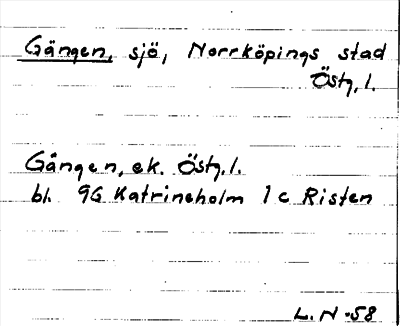 Gången, sjö, Norrköpings stad
Östg. l.
Gången, ek. Östg. l.
bl. 9G Katrineholm 1 c Risten
L. N -58